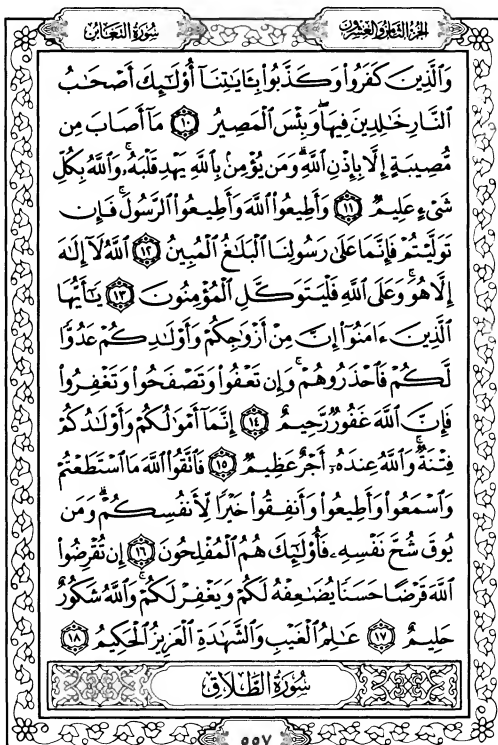 سُورَةُ التَّغَابُنِ
الجُزْءُ الثَّامِنُ وَالعِشْرُونَ
وَٱلَّذِينَ كَفَرُوا۟ وَكَذَّبُوا۟ بِـَٔايَٰتِنَآ أُو۟لَٰٓئِكَ أَصْحَٰبُ
ٱلنَّارِ خَٰلِدِينَ فِيهَا ۖ وَبِئْسَ ٱلْمَصِيرُ ١٠ مَآ أَصَابَ مِن
مُّصِيبَةٍ إِلَّا بِإِذْنِ ٱللَّهِ ۗ وَمَن يُؤْمِنۢ بِٱللَّهِ يَهْدِ قَلْبَهُۥ ۚ وَٱللَّهُ بِكُلِّ
شَىْءٍ عَلِيمٌ ١١ وَأَطِيعُوا۟ ٱللَّهَ وَأَطِيعُوا۟ ٱلرَّسُولَ ۚ فَإِن
تَوَلَّيْتُمْ فَإِنَّمَا عَلَىٰ رَسُولِنَا ٱلْبَلَٰغُ ٱلْمُبِينُ ١٢ ٱللَّهُ لَآ إِلَٰهَ
إِلَّا هُوَ ۚ وَعَلَى ٱللَّهِ فَلْيَتَوَكَّلِ ٱلْمُؤْمِنُونَ ١٣ يَٰٓأَيُّهَا
ٱلَّذِينَ ءَامَنُوٓا۟ إِنَّ مِنْ أَزْوَٰجِكُمْ وَأَوْلَٰدِكُمْ عَدُوًّا
لَّكُمْ فَٱحْذَرُوهُمْ ۚ وَإِن تَعْفُوا۟ وَتَصْفَحُوا۟ وَتَغْفِرُوا۟
فَإِنَّ ٱللَّهَ غَفُورٌ رَّحِيمٌ ١٤ إِنَّمَآ أَمْوَٰلُكُمْ وَأَوْلَٰدُكُمْ
فِتْنَةٌ ۚ وَٱللَّهُ عِندَهُۥٓ أَجْرٌ عَظِيمٌ ١٥ فَٱتَّقُوا۟ ٱللَّهَ مَا ٱسْتَطَعْتُمْ
وَٱسْمَعُوا۟ وَأَطِيعُوا۟ وَأَنفِقُوا۟ خَيْرًا لِّأَنفُسِكُمْ ۗ وَمَن
يُوقَ شُحَّ نَفْسِهِۦ فَأُو۟لَٰٓئِكَ هُمُ ٱلْمُفْلِحُونَ ١٦ إِن تُقْرِضُوا۟
ٱللَّهَ قَرْضًا حَسَنًا يُضَٰعِفْهُ لَكُمْ وَيَغْفِرْ لَكُمْ ۚ وَٱللَّهُ شَكُورٌ
حَلِيمٌ ١٧ عَٰلِمُ ٱلْغَيْبِ وَٱلشَّهَٰدَةِ ٱلْعَزِيزُ ٱلْحَكِيمُ ١٨
سُورَةُ الطَّلَاقِ
٥٥٧